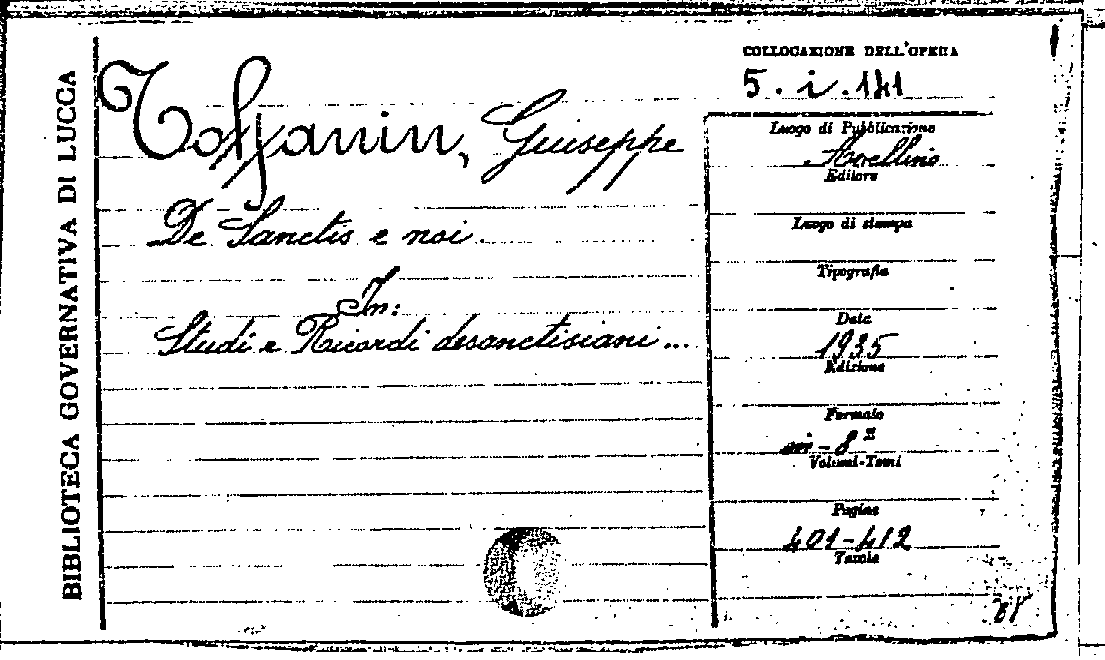 BIBLIOTECA GOVERNATIVA DI LUCCA
COLLOCAZIONE DELL'OPERA
5. i. 141
Toffanin, Giuseppe
De Sanctis e noi
In:
Studi e Ricordi desanctisiani...
Luogo di Pubblicazione
Avellino
Editore
Luogo di stampa
Tipografia
Data
1935
Edizione
Formato
in-8º
Volumi-Tomi
Pagine
401-412
Tavole